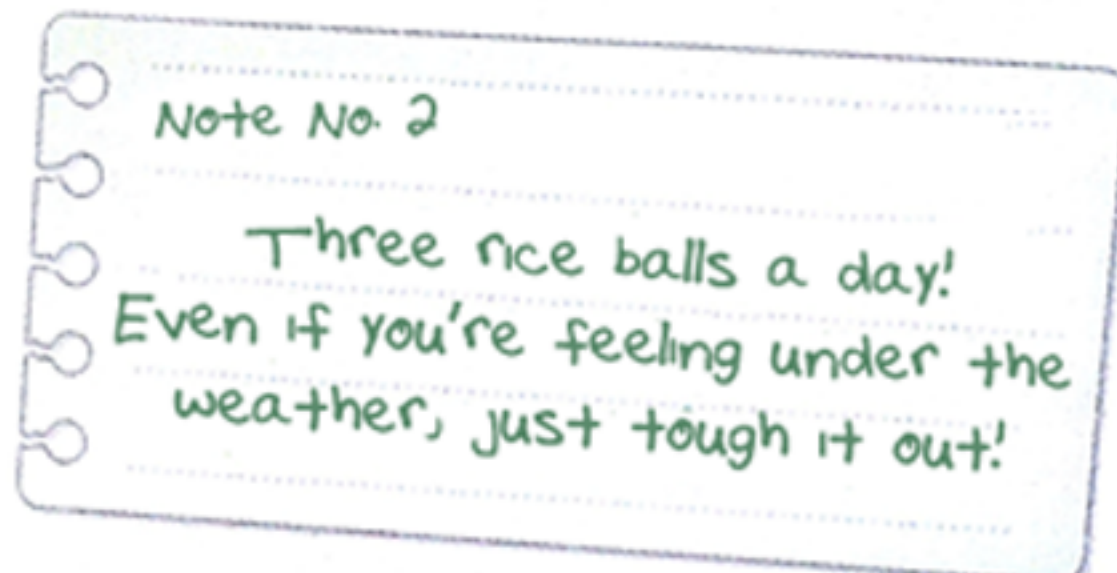 Note No. 2
Three rice balls a day!
Even if you're feeling under the
weather, just tough it out!